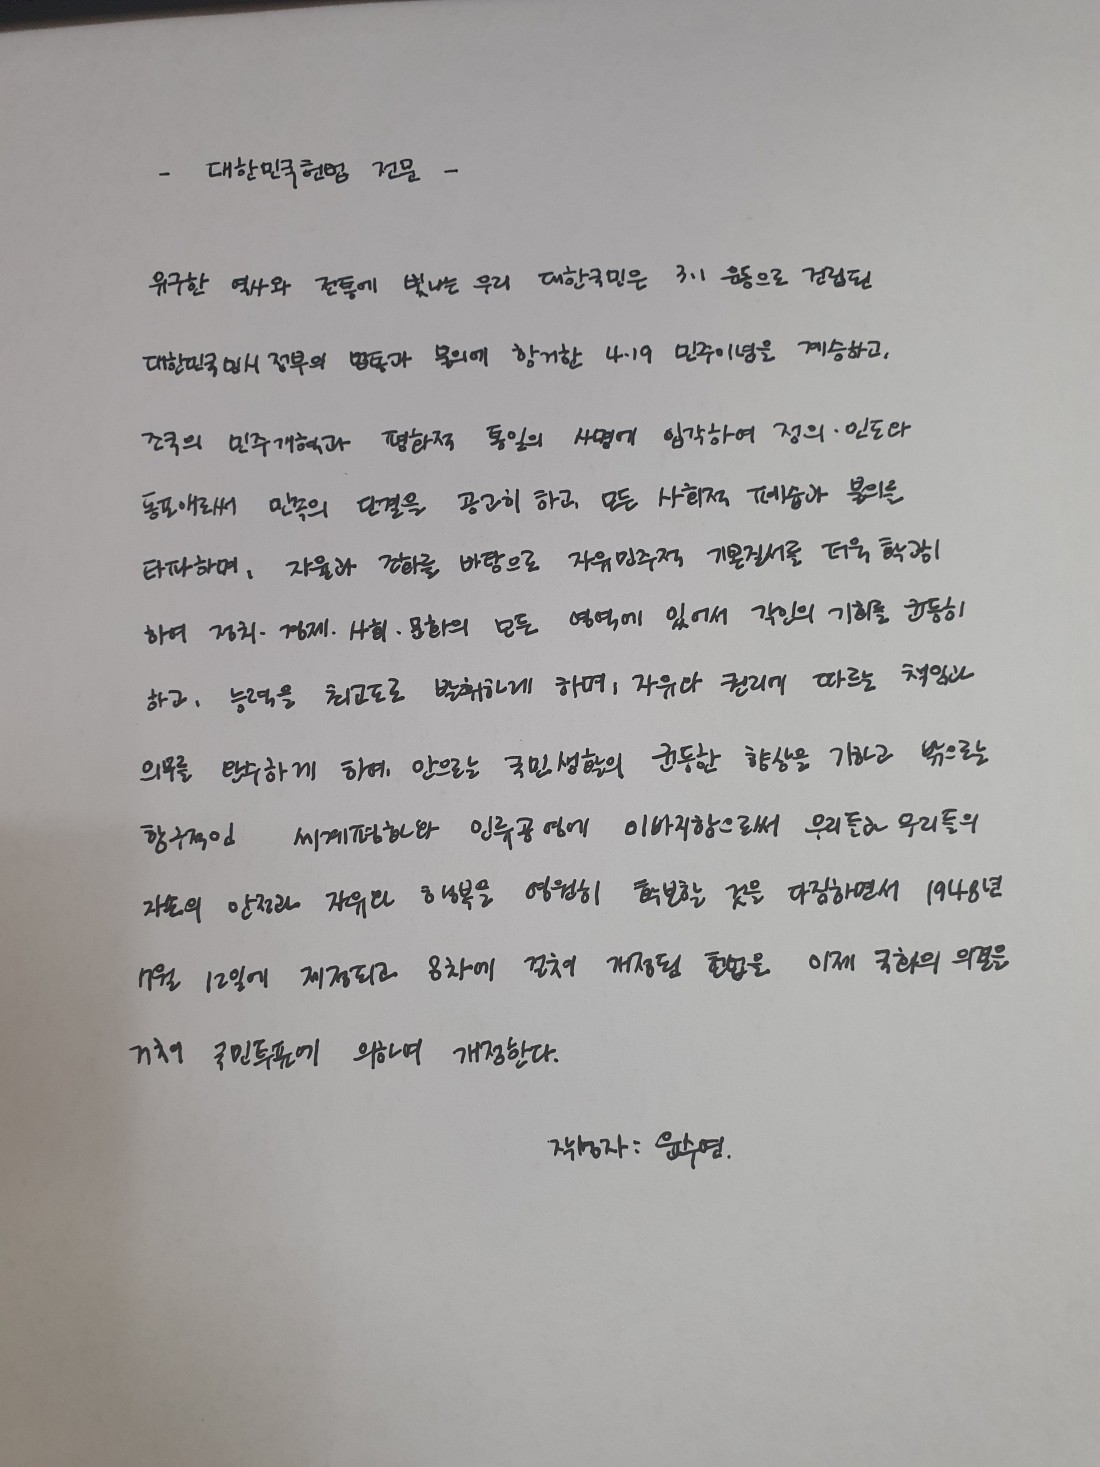 - 대한민국헌법 전문 -
유구한 역사와 전통에 빛나는 우리 대한국민은 3.1 운동으로 건립된
대한민국임시정부의 법통과 불의에 항거한 4.19 민주이념을 계승하고,
조국의 민주개혁과 평화적 통일의 사명에 입각하여 정의·인도와
동포애로써 민족의 단결을 공고히 하고, 모든 사회적 폐습과 불의를
타파하며, 자율과 조화를 바탕으로 자유민주적 기본질서를 더욱 확고히
하여 정치·경제·사회·문화의 모든 영역에 있어서 각인의 기회를 균등히
하고, 능력을 최고도로 발휘하게 하며, 자유와 권리에 따르는 책임과
의무를 완수하게 하여, 안으로는 국민생활의 균등한 향상을 기하고 밖으로는
항구적인 세계평화와 인류공영에 이바지함으로써 우리들과 우리들의
자손의 안전과 자유와 행복을 영원히 확보할 것을 다짐하면서 1948년
7월 12일에 제정되고 8차에 걸쳐 개정된 헌법을 이제 국회의 의결을
거쳐 국민투표에 의하여 개정한다.
작성자: 윤수연.